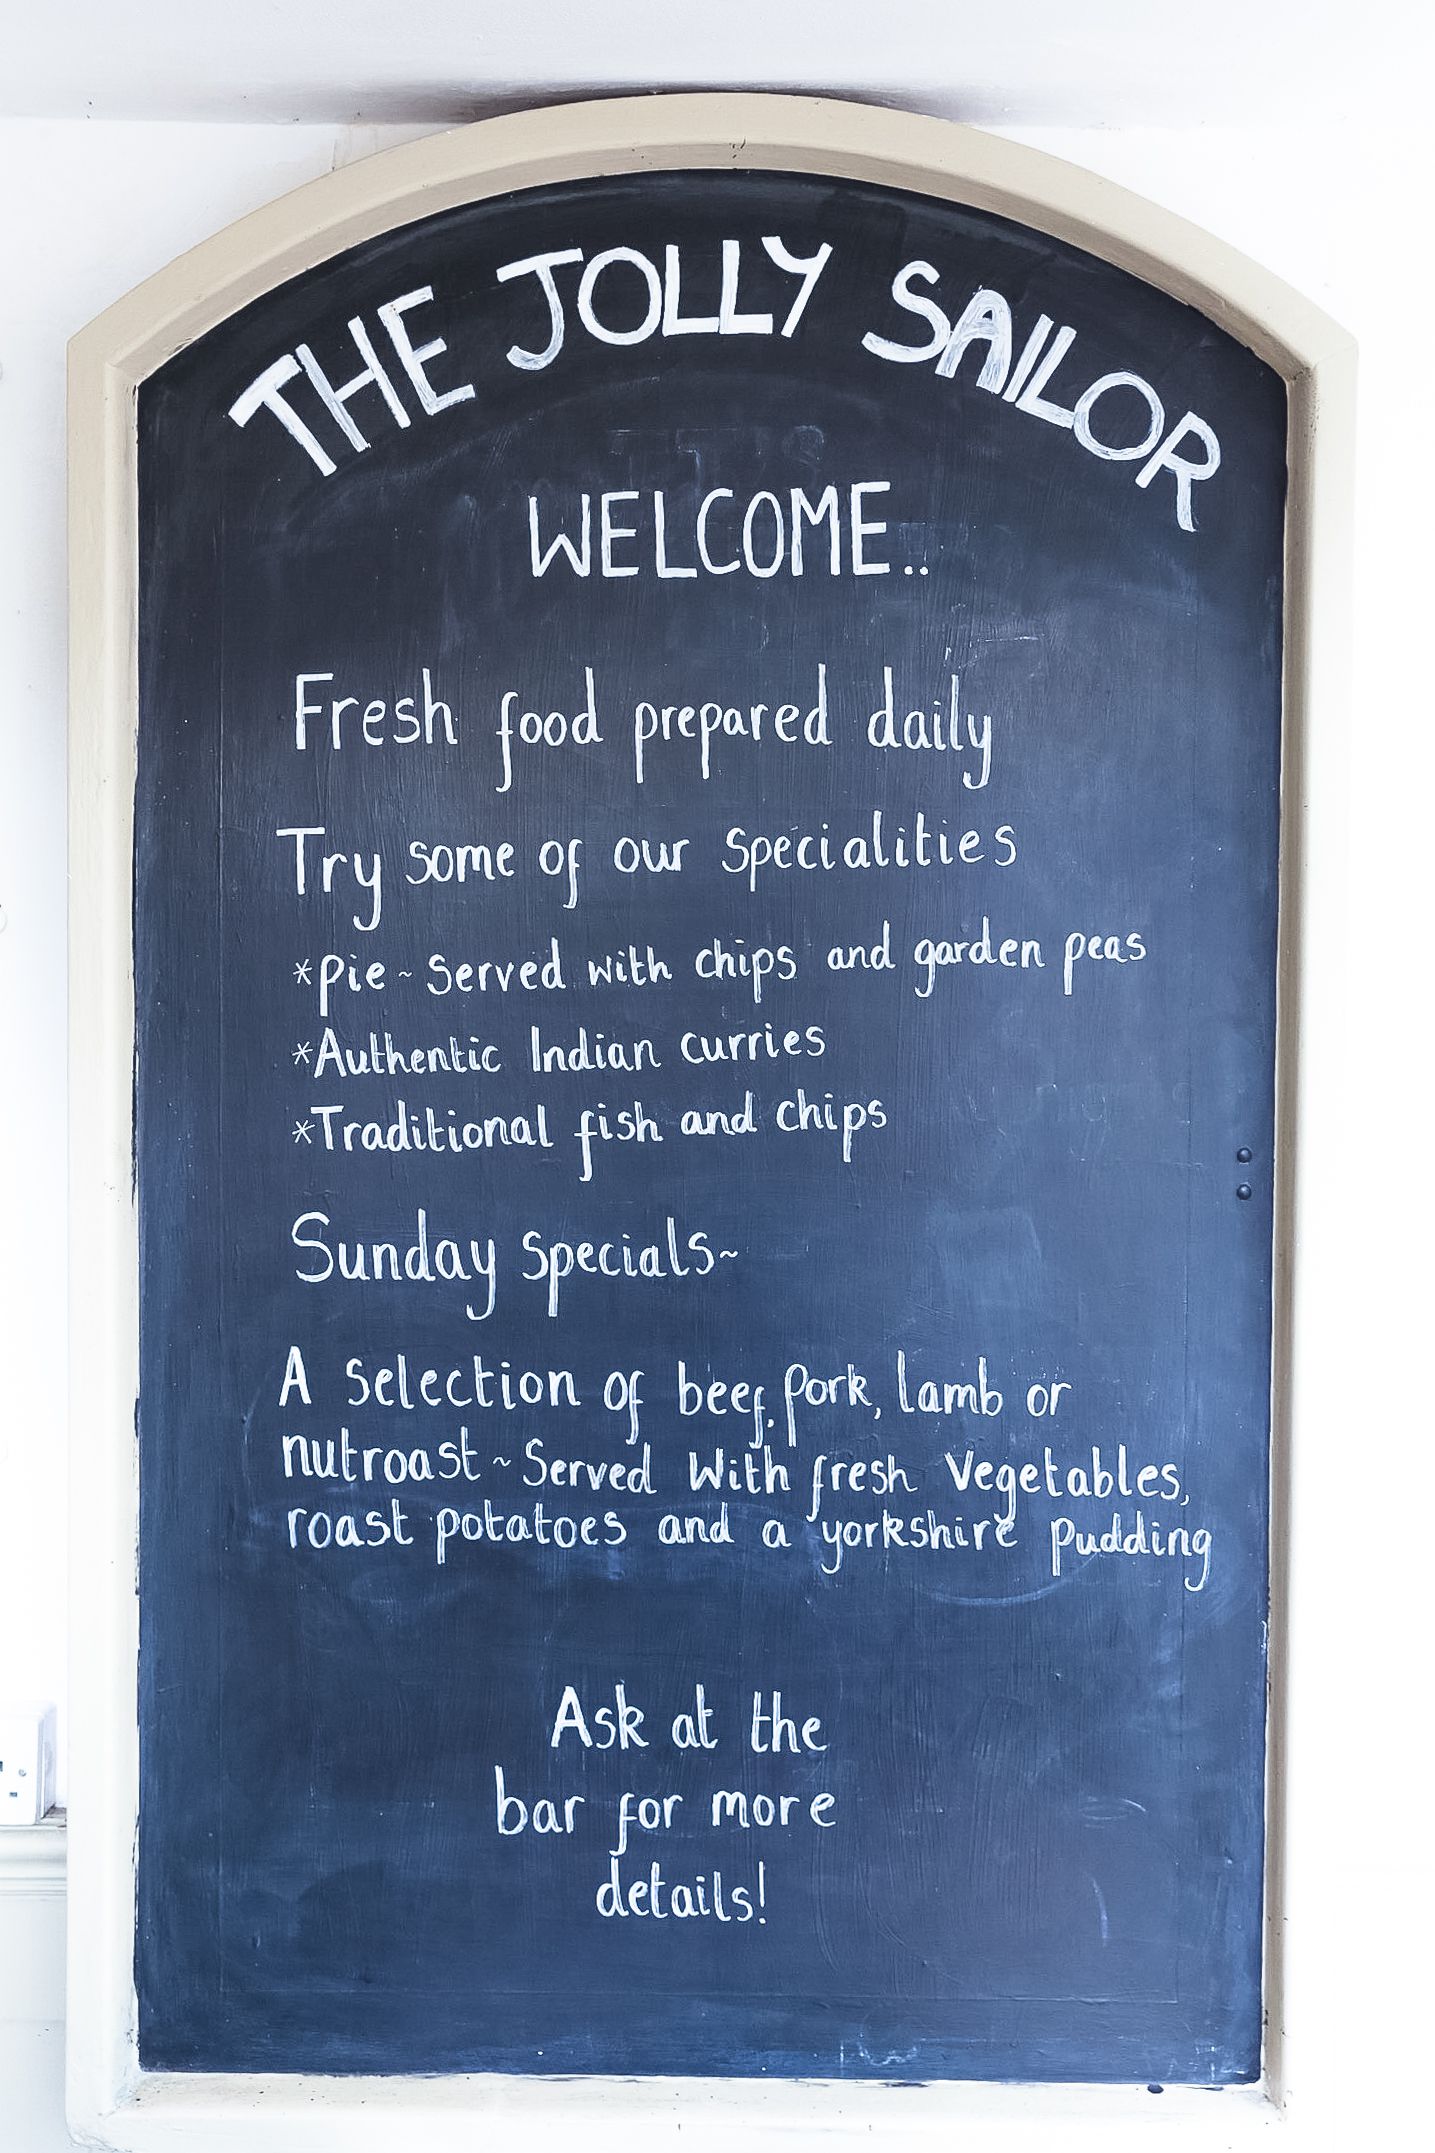 THE JOLLY SAILOR
WELCOME..
Fresh food prepared daily
Try some of our specialities
*pie ~ served with chips and garden peas
*Authentic Indian curries
*Traditional fish and chips
Sunday specials~
A selection of beef, pork, lamb or
nutroast ~ Served With fresh vegetables,
roast potatoes and a yorkshire pudding
Ask at the
bar for more
details!